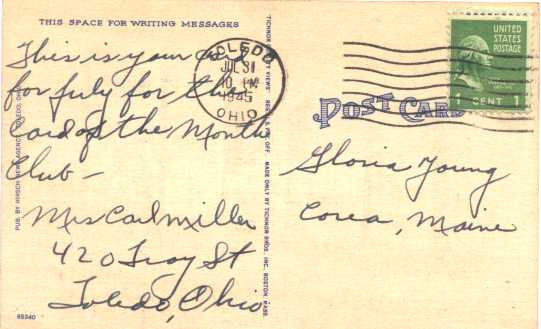 THIS SPACE FOR WRITING MESSAGES
This is your card
for July for the
Card of the Month
Club -
Mrs Carl Miller
420 Troy St
Toledo, Ohio
TOLEDO
JUL 31
10 PM
1945
OHIO
UNITED
STATES
POSTAGE
1 CENT 1
POST CARD
Gloria Young
Corea, Maine
PUB. BY HIRSCH NEWS AGENCY, TOLEDO, OHIO
MADE ONLY BY TICHNOR BROS., INC., BOSTON, MASS.